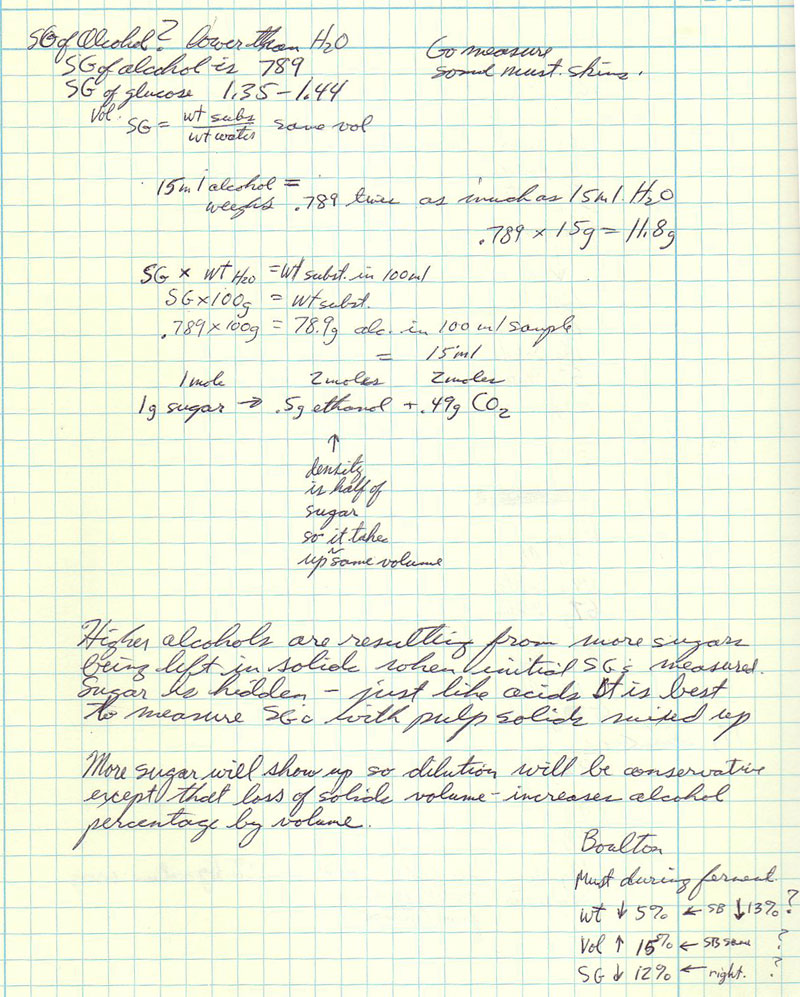 SG of alcohol? lower than H2O
SG of alcohol is 789
SG of glucose 1.35-1.44
Vol.
SG = wt subs / wt water same vol
Go measure
some must. skins.
15ml alcohol =
weighs .789 times as much as 15ml. H2O
.789 x 15g = 11.8g
SG x wt H2O = wt subst. in 100ml
SG x 100g = wt subst.
.789 x 100g = 78.9g alc. in 100 ml sample
= 15ml
1 mole 2 moles 2 moles
1g sugar → .5g ethanol + .49g CO2
↑
density
is half of
sugar
so it take
up ~ same volume
Higher alcohols are resulting from more sugars
being left in solids when initial SG is measured.
Sugar is hidden - just like acids It is best
to measure SG with pulp solids mixed up
More sugar will show up so dilution will be conservative
except that loss of solids volume - increases alcohol
percentage by volume.
Boulton
Must during ferment.
wt ↓ 5% ← SB ↓ 13% ?
Vol ↑ 15% ← SB same ?
SG ↓ 12% ← right. ?